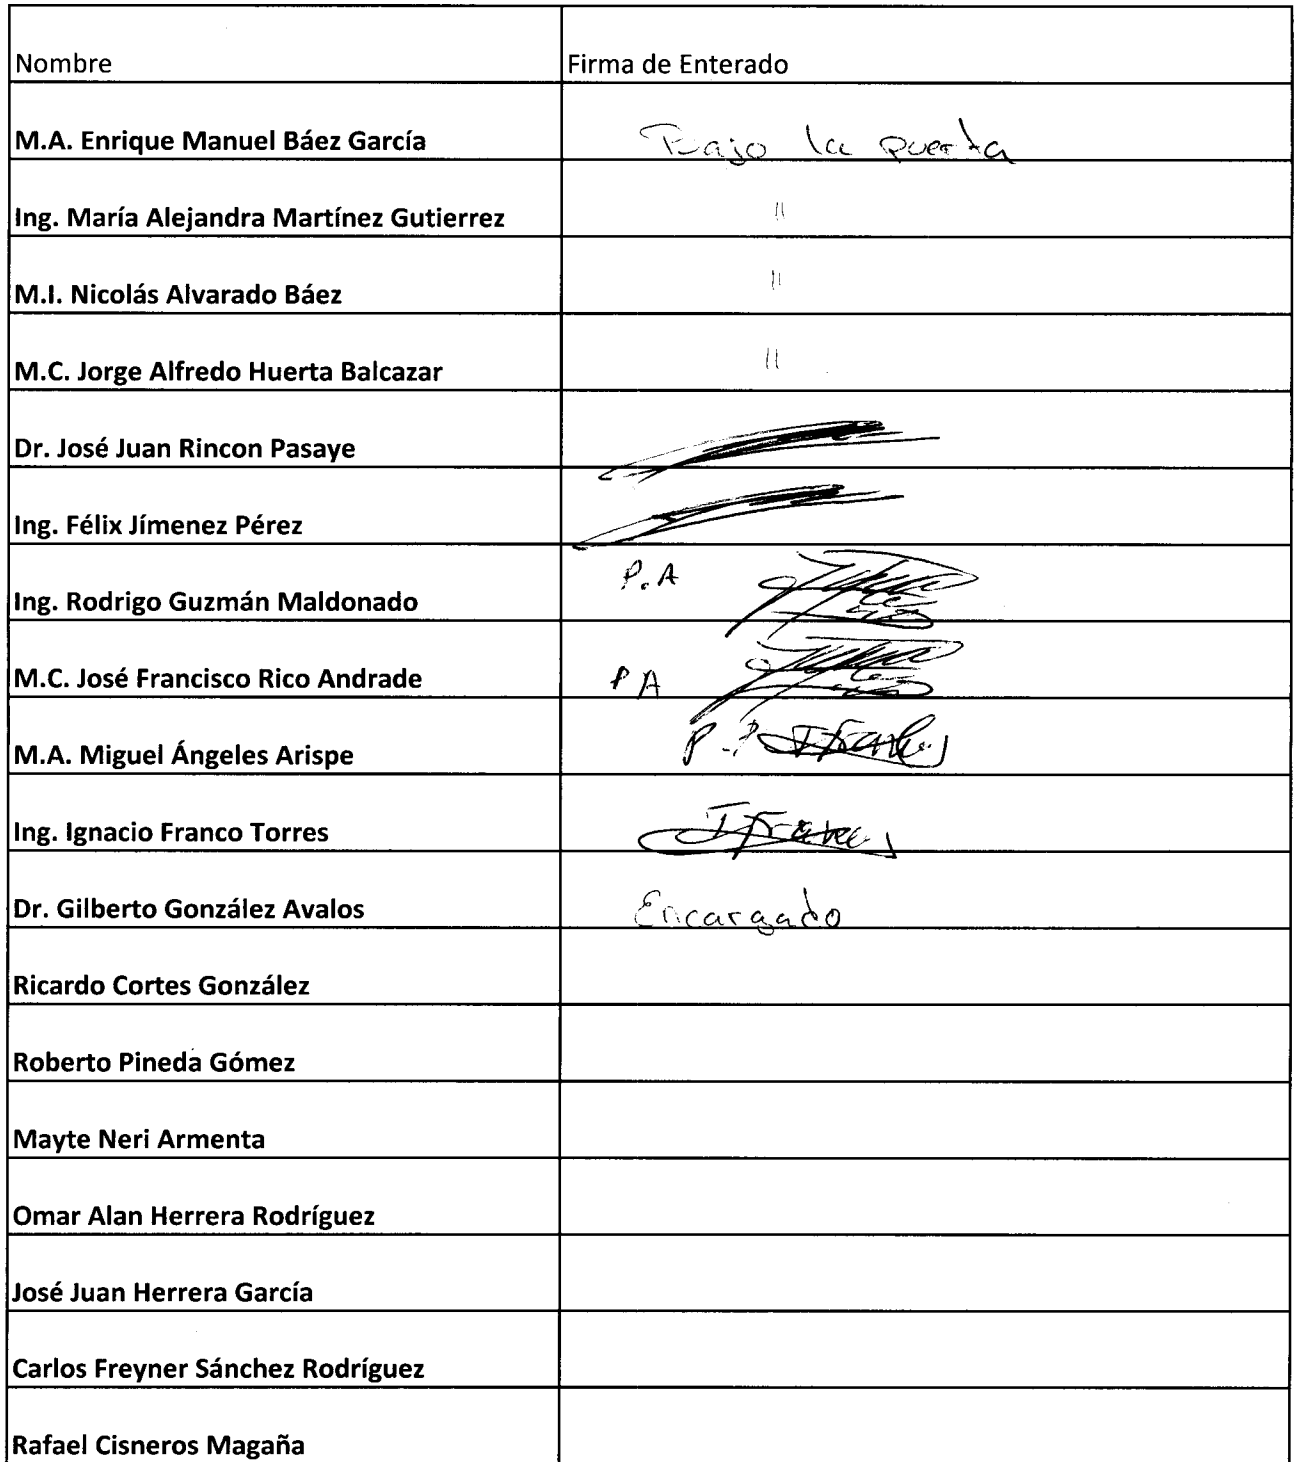 Nombre Firma de Enterado
M.A. Enrique Manuel Báez García Bajo la puerta
Ing. María Alejandra Martínez Gutierrez "
M.I. Nicolás Alvarado Báez "
M.C. Jorge Alfredo Huerta Balcazar "
Dr. José Juan Rincon Pasaye
Ing. Félix Jímenez Pérez
Ing. Rodrigo Guzmán Maldonado P.A
M.C. José Francisco Rico Andrade PA
M.A. Miguel Ángeles Arispe
Ing. Ignacio Franco Torres
Dr. Gilberto González Avalos Encargado
Ricardo Cortes González
Roberto Pineda Gómez
Mayte Neri Armenta
Omar Alan Herrera Rodríguez
José Juan Herrera García
Carlos Freyner Sánchez Rodríguez
Rafael Cisneros Magaña